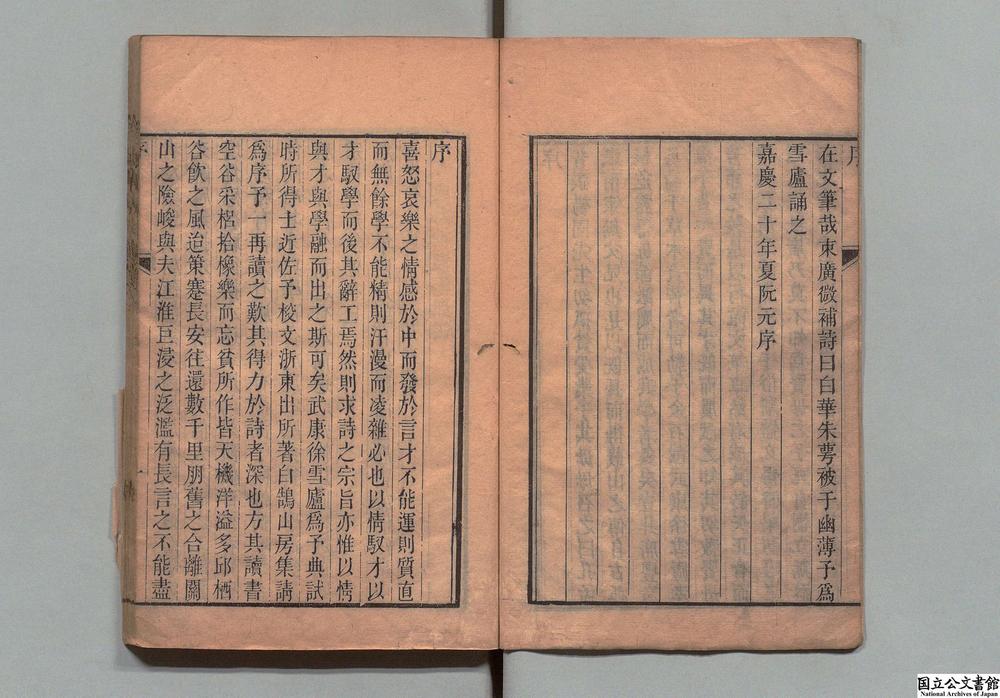 在文筆哉束廣微補詩曰白華朱萼被于幽薄予爲
雪廬誦之
嘉慶二十年夏阮元序
序
喜怒哀樂之情感於中而發於言才不能運則質直
而無餘學不能精則汗漫而凌雜必也以情馭才以
才馭學而後其辭工焉然則求詩之宗旨亦惟以情
與才與學融而出之斯可矣武康徐雪廬爲予典試
時所得士近佐予校文浙東出所著白鵠山房集請
爲序予一再讀之歎其得力於詩者深也方其讀書
空谷采梠拾橡樂而忘貧所作皆天機洋溢多邱栖
谷飮之風迨策蹇長安往還數千里朋舊之合離關
山之險峻與夫江淮巨浸之泛濫有長言之不能盡
序
一
国立公文書館
National Archives of Japan